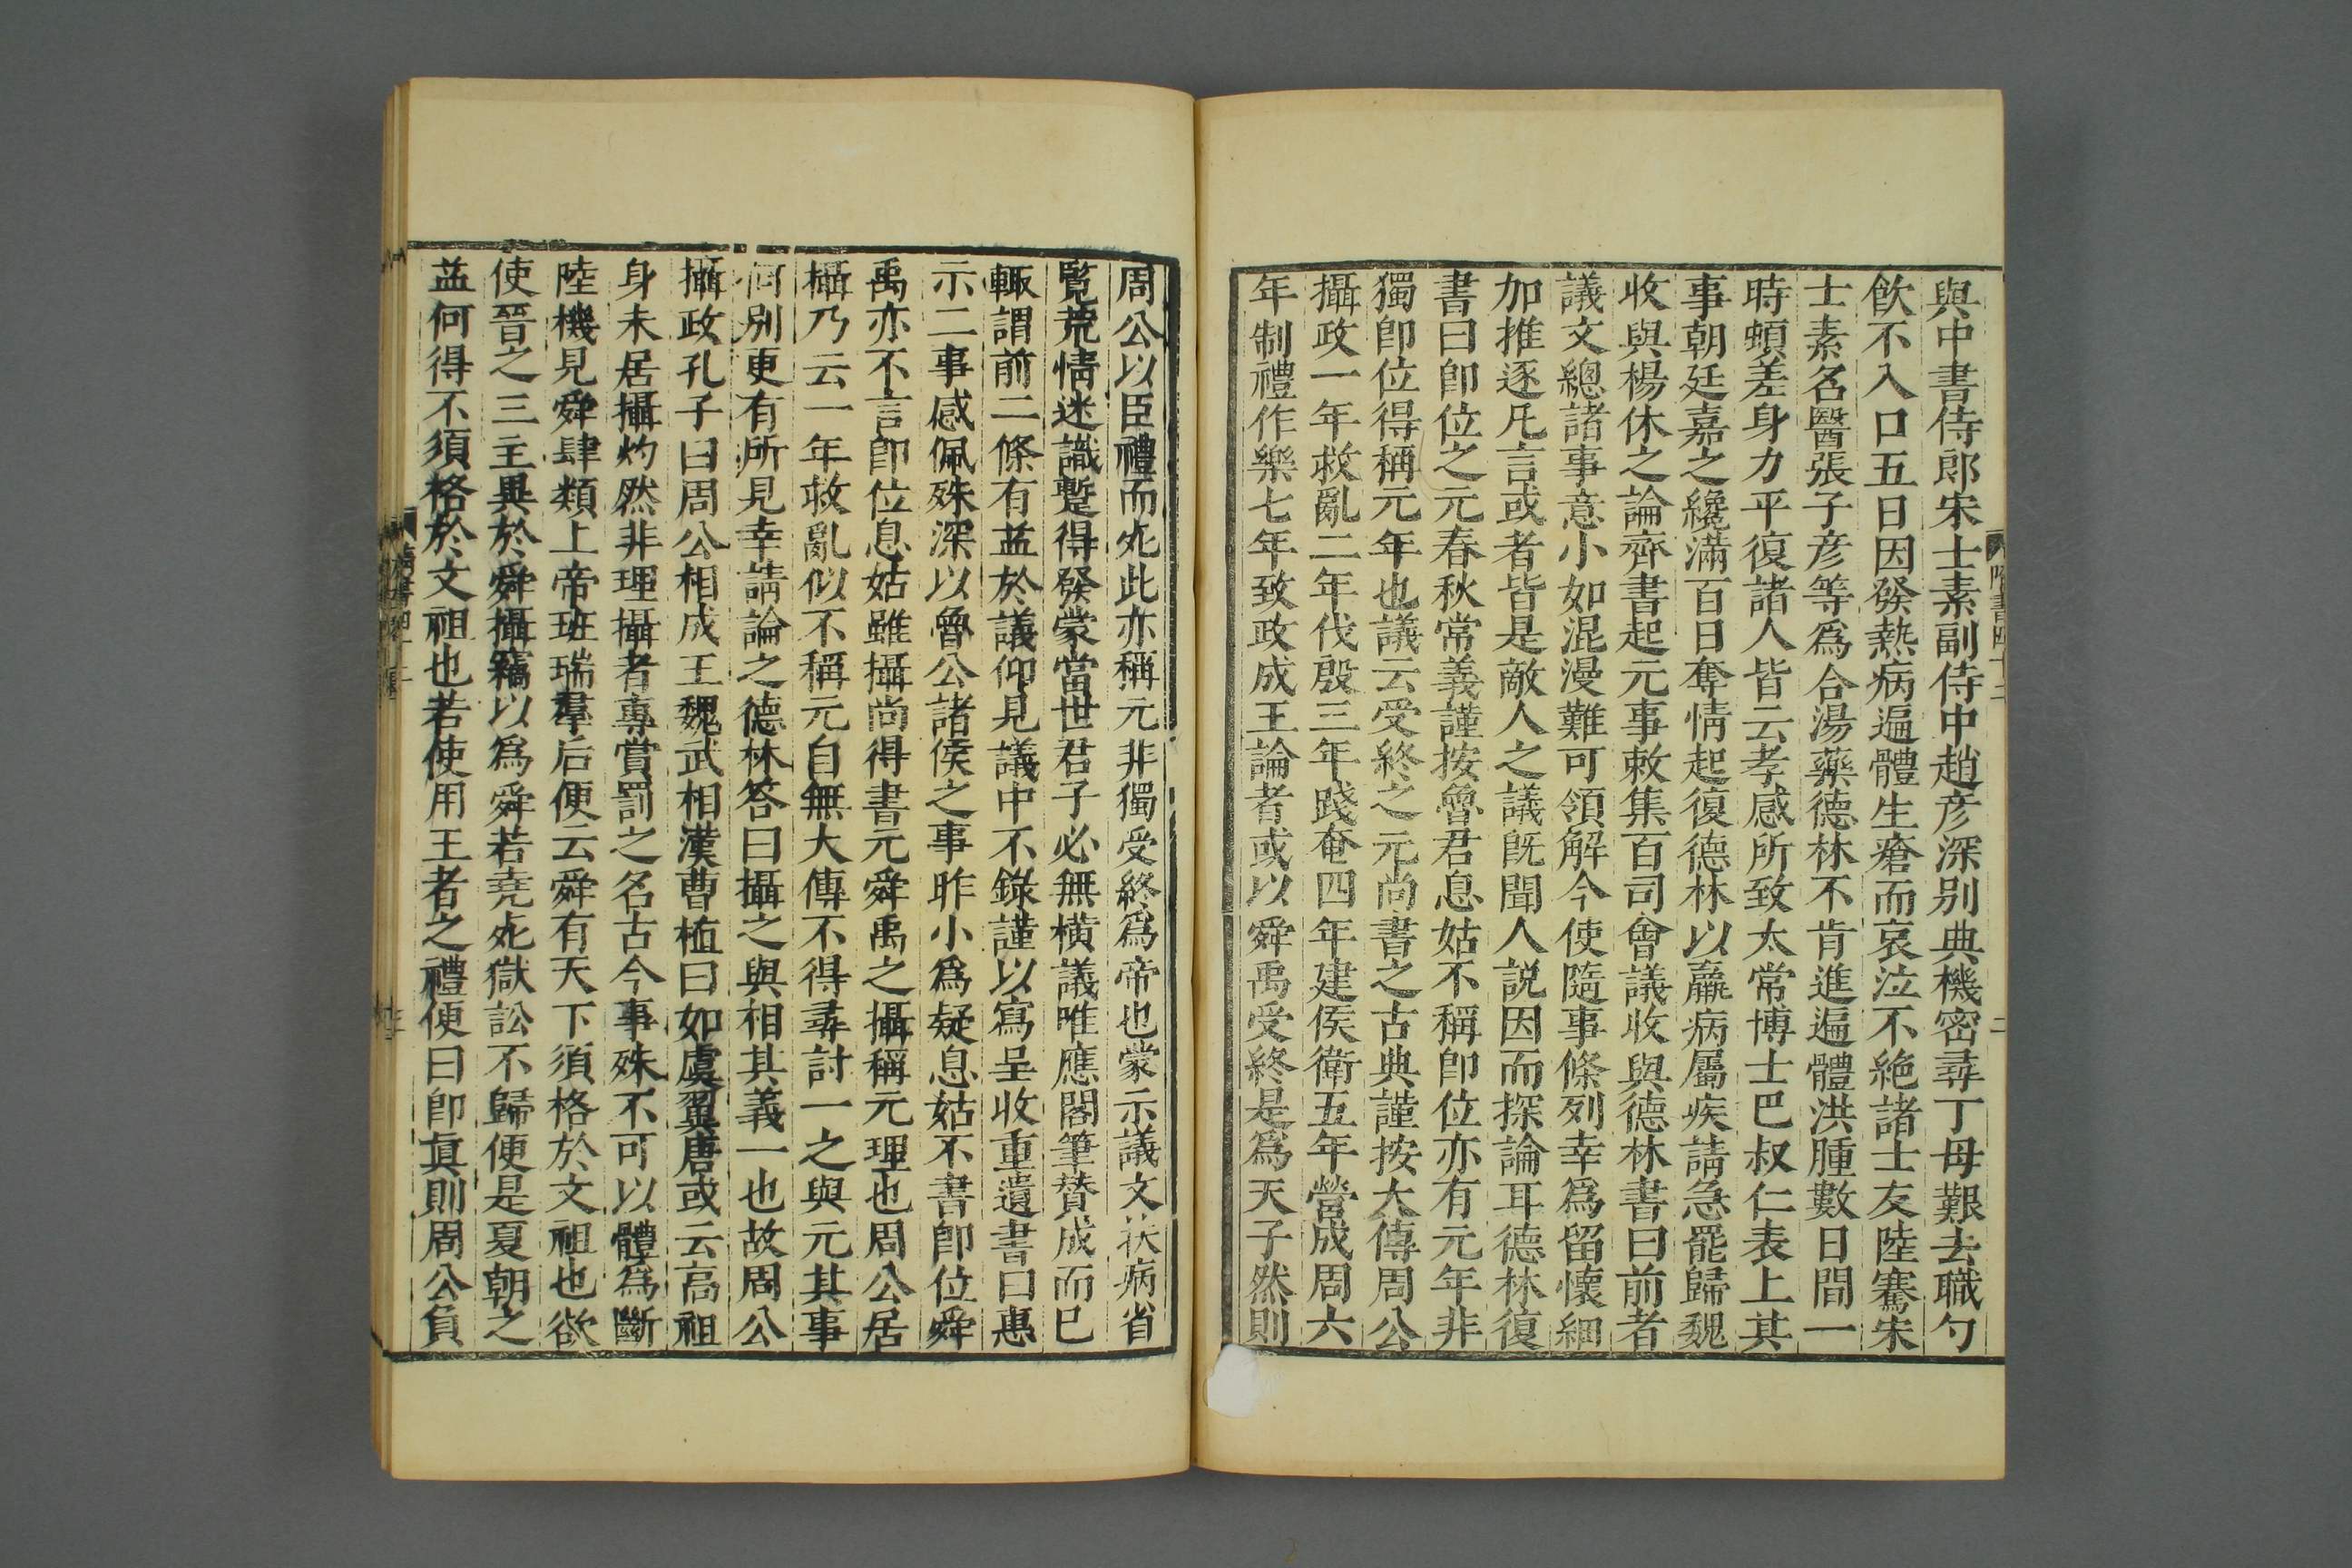 與中書侍郎宋士素副侍中趙彦深别典機密尋丁母艱去職勺
飲不入口五日因發熱病遍體生瘡而哀泣不絶諸士友陸騫宋
士素名醫張子彦等爲合湯藥德林不肯進遍體洪腫數日間一
時頓差身力平復諸人皆云孝感所致太常博士巴叔仁表上其
事朝廷嘉之纔滿百日奪情起復德林以羸病屬疾請急罷歸魏
收與楊休之論齊書起元事敕集百司會議收與德林書曰前者
議文總諸事意小如混漫難可領解今使隨事條列幸爲留懷細
加推逐凡言或者皆是敵人之議既聞人説因而探論耳德林復
書曰卽位之元春秋常義謹按魯君息姑不稱卽位亦有元年非
獨卽位得稱元年也議云受終之元尚書之古典謹按大傳周公
攝政一年救亂二年伐殷三年踐奄四年建侯衛五年營成周六
年制禮作樂七年致政成王論者或以舜禹受終是爲天子然則
周公以臣禮而死此亦稱元非獨受終爲帝也蒙示議文扶病省
覧荒情迷識蹔得發蒙當世君子必無横議唯應閣筆賛成而已
輙謂前二條有益於議仰見議中不錄謹以寫呈收重遺書曰惠
示二事感佩殊深以魯公諸侯之事昨小爲疑息姑不書卽位舜
禹亦不言卽位息姑雖攝尚得書元舜禹之攝稱元理也周公居
攝乃云一年救亂似不稱元自無大傳不得尋討一之與元其事
何别更有所見幸請論之德林答曰攝之與相其義一也故周公
攝政孔子曰周公相成王魏武相漢曹植曰如虞翼唐或云高祖
身未居攝灼然非理攝者專賞罰之名古今事殊不可以體爲斷
陸機見舜肆類上帝班瑞羣后便云舜有天下須格於文祖也欲
使晉之三主異於舜攝竊以爲舜若堯死獄訟不歸便是夏朝之
益何得不須格於文祖也若使用王者之禮便曰卽真則周公負